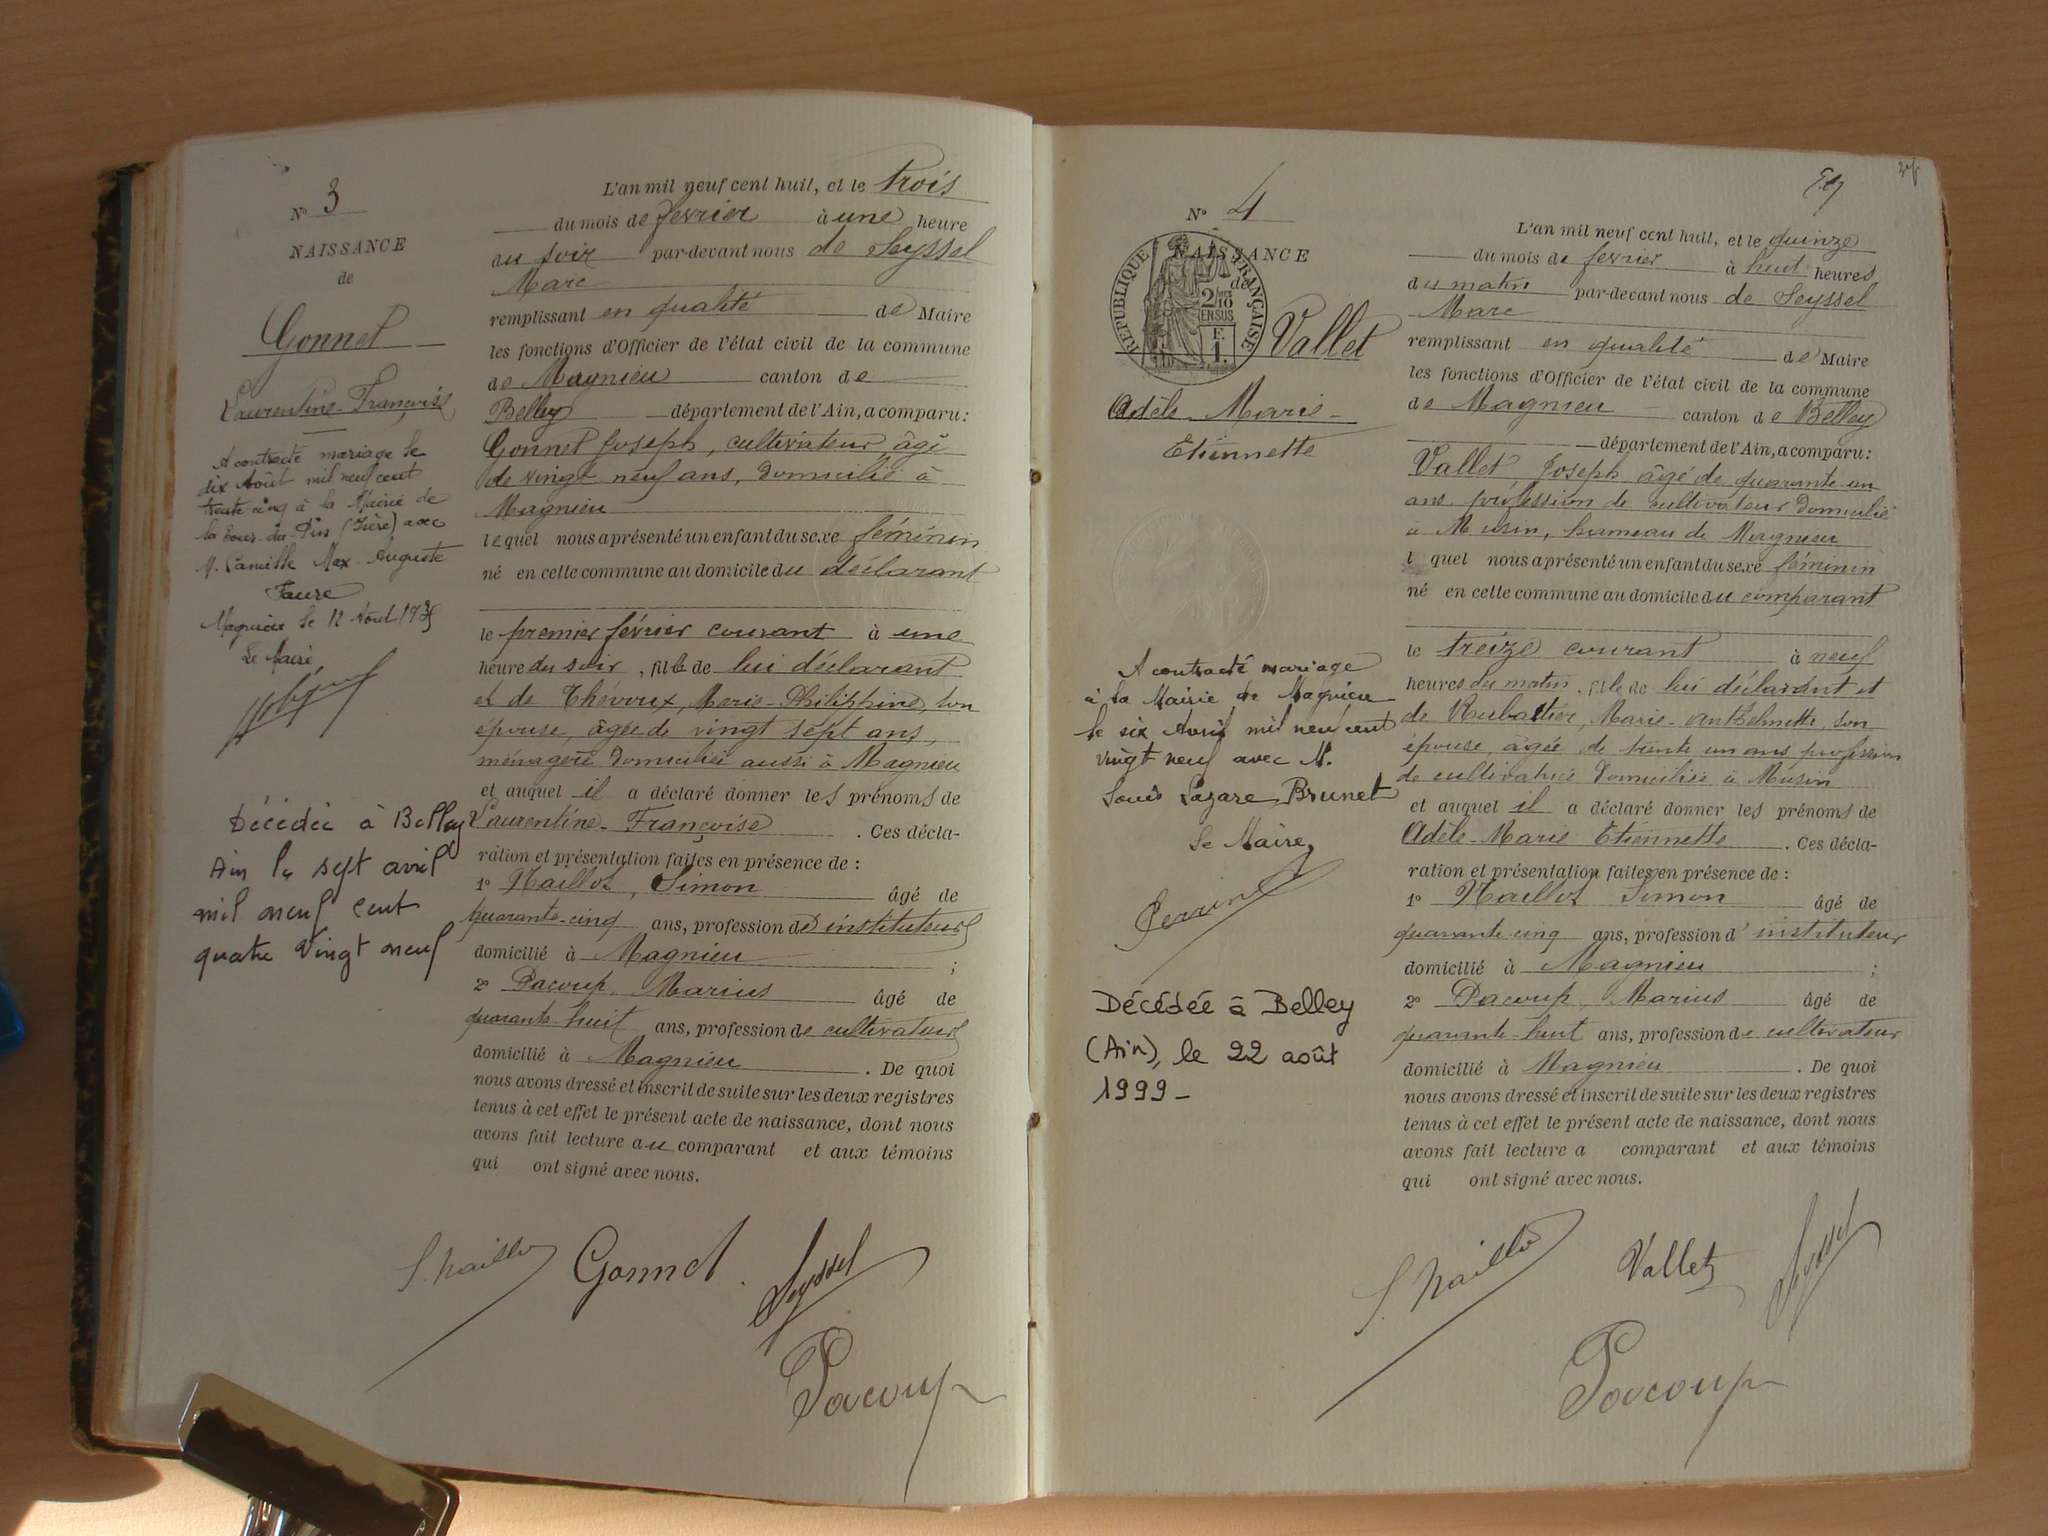 N° 3
NAISSANCE
de
Gonnet
Laurentine-Françoise
A contracté mariage le
dix Août mil neuf cent
trente cinq à la Mairie de
la Tour-du-Pin (Isère) avec
M. Camille Max Auguste
Faure
Magnieu le 12 Août 1935
Le Maire
Décédée à Belley
Ain le sept avril
mil neuf cent
quatre vingt neuf
L'an mil neuf cent huit, et le trois
du mois de fevrier à une heure
du soir par-devant nous de Seyssel
Marc
remplissant en qualité de Maire
les fonctions d'Officier de l'état civil de la commune
de Magnieu canton de
Belley département de l'Ain, a comparu:
Gonnet Joseph, cultivateur, âgé
de vingt neuf ans, domicilié à
Magnieu
lequel nous a présenté un enfant du sexe féminin
né en cette commune au domicile du déclarant
le premier février courant à une
heure du soir, fille de lui déclarant
et de Thevoux, Marie-Philippine, son
épouse, âgée de vingt sept ans,
ménagère domiciliée aussi à Magnieu
et auquel il a déclaré donner les prénoms de
Laurentine-Françoise. Ces décla-
ration et présentation faites en présence de :
1° Naillod, Simon âgé de
quarante-cinq ans, profession de instituteur
domicilié à Magnieu ;
2° Pacoup, Marius âgé de
quarante-huit ans, profession de cultivateur
domicilié à Magnieu. De quoi
nous avons dressé et inscrit de suite sur les deux registres
tenus à cet effet le présent acte de naissance, dont nous
avons fait lecture au comparant et aux témoins
qui ont signé avec nous.
Gonnet
Seyssel
Pacoup
N° 4
NAISSANCE
de
RÉPUBLIQUE FRANÇAISE
2/10
EN SUS
F.
1.
Vallet
Adèle-Marie-
Etiennette
A contracté mariage
à la Mairie de Magnieu
le six Avril mil neuf cent
vingt neuf avec M.
Louis Lazare Brunet
Le Maire,
Perrin
Décédée à Belley
(Ain), le 22 août
1999-
L'an mil neuf cent huit, et le quinze
du mois de fevrier à huit heures
du matin par-devant nous de Seyssel
Marc
remplissant en qualité de Maire
les fonctions d'Officier de l'état civil de la commune
de Magnieu canton de Belley
département de l'Ain, a comparu:
Vallet Joseph âgé de quarante-un
ans profession de cultivateur domicilié
à Musin, hameau de Magnieu
l quel nous a présenté un enfant du sexe féminin
né en cette commune au domicile du comparant
le treize courant à neuf
heures du matin, fille de lui déclarant et
de Marie-Anthelmette, son
épouse, âgée de trente un ans profession
de cultivatrice domiciliée à Musin
et auquel il a déclaré donner les prénoms de
Adèle-Marie Etiennette. Ces décla-
ration et présentation faites en présence de :
1° Naillod Simon âgé de
quarante cinq ans, profession d' instituteur
domicilié à Magnieu ;
2° Pacoup, Marius âgé de
quarante-huit ans, profession de cultivateur
domicilié à Magnieu. De quoi
nous avons dressé et inscrit de suite sur les deux registres
tenus à cet effet le présent acte de naissance, dont nous
avons fait lecture a comparant et aux témoins
qui ont signé avec nous.
Vallet
Seyssel
Pacoup